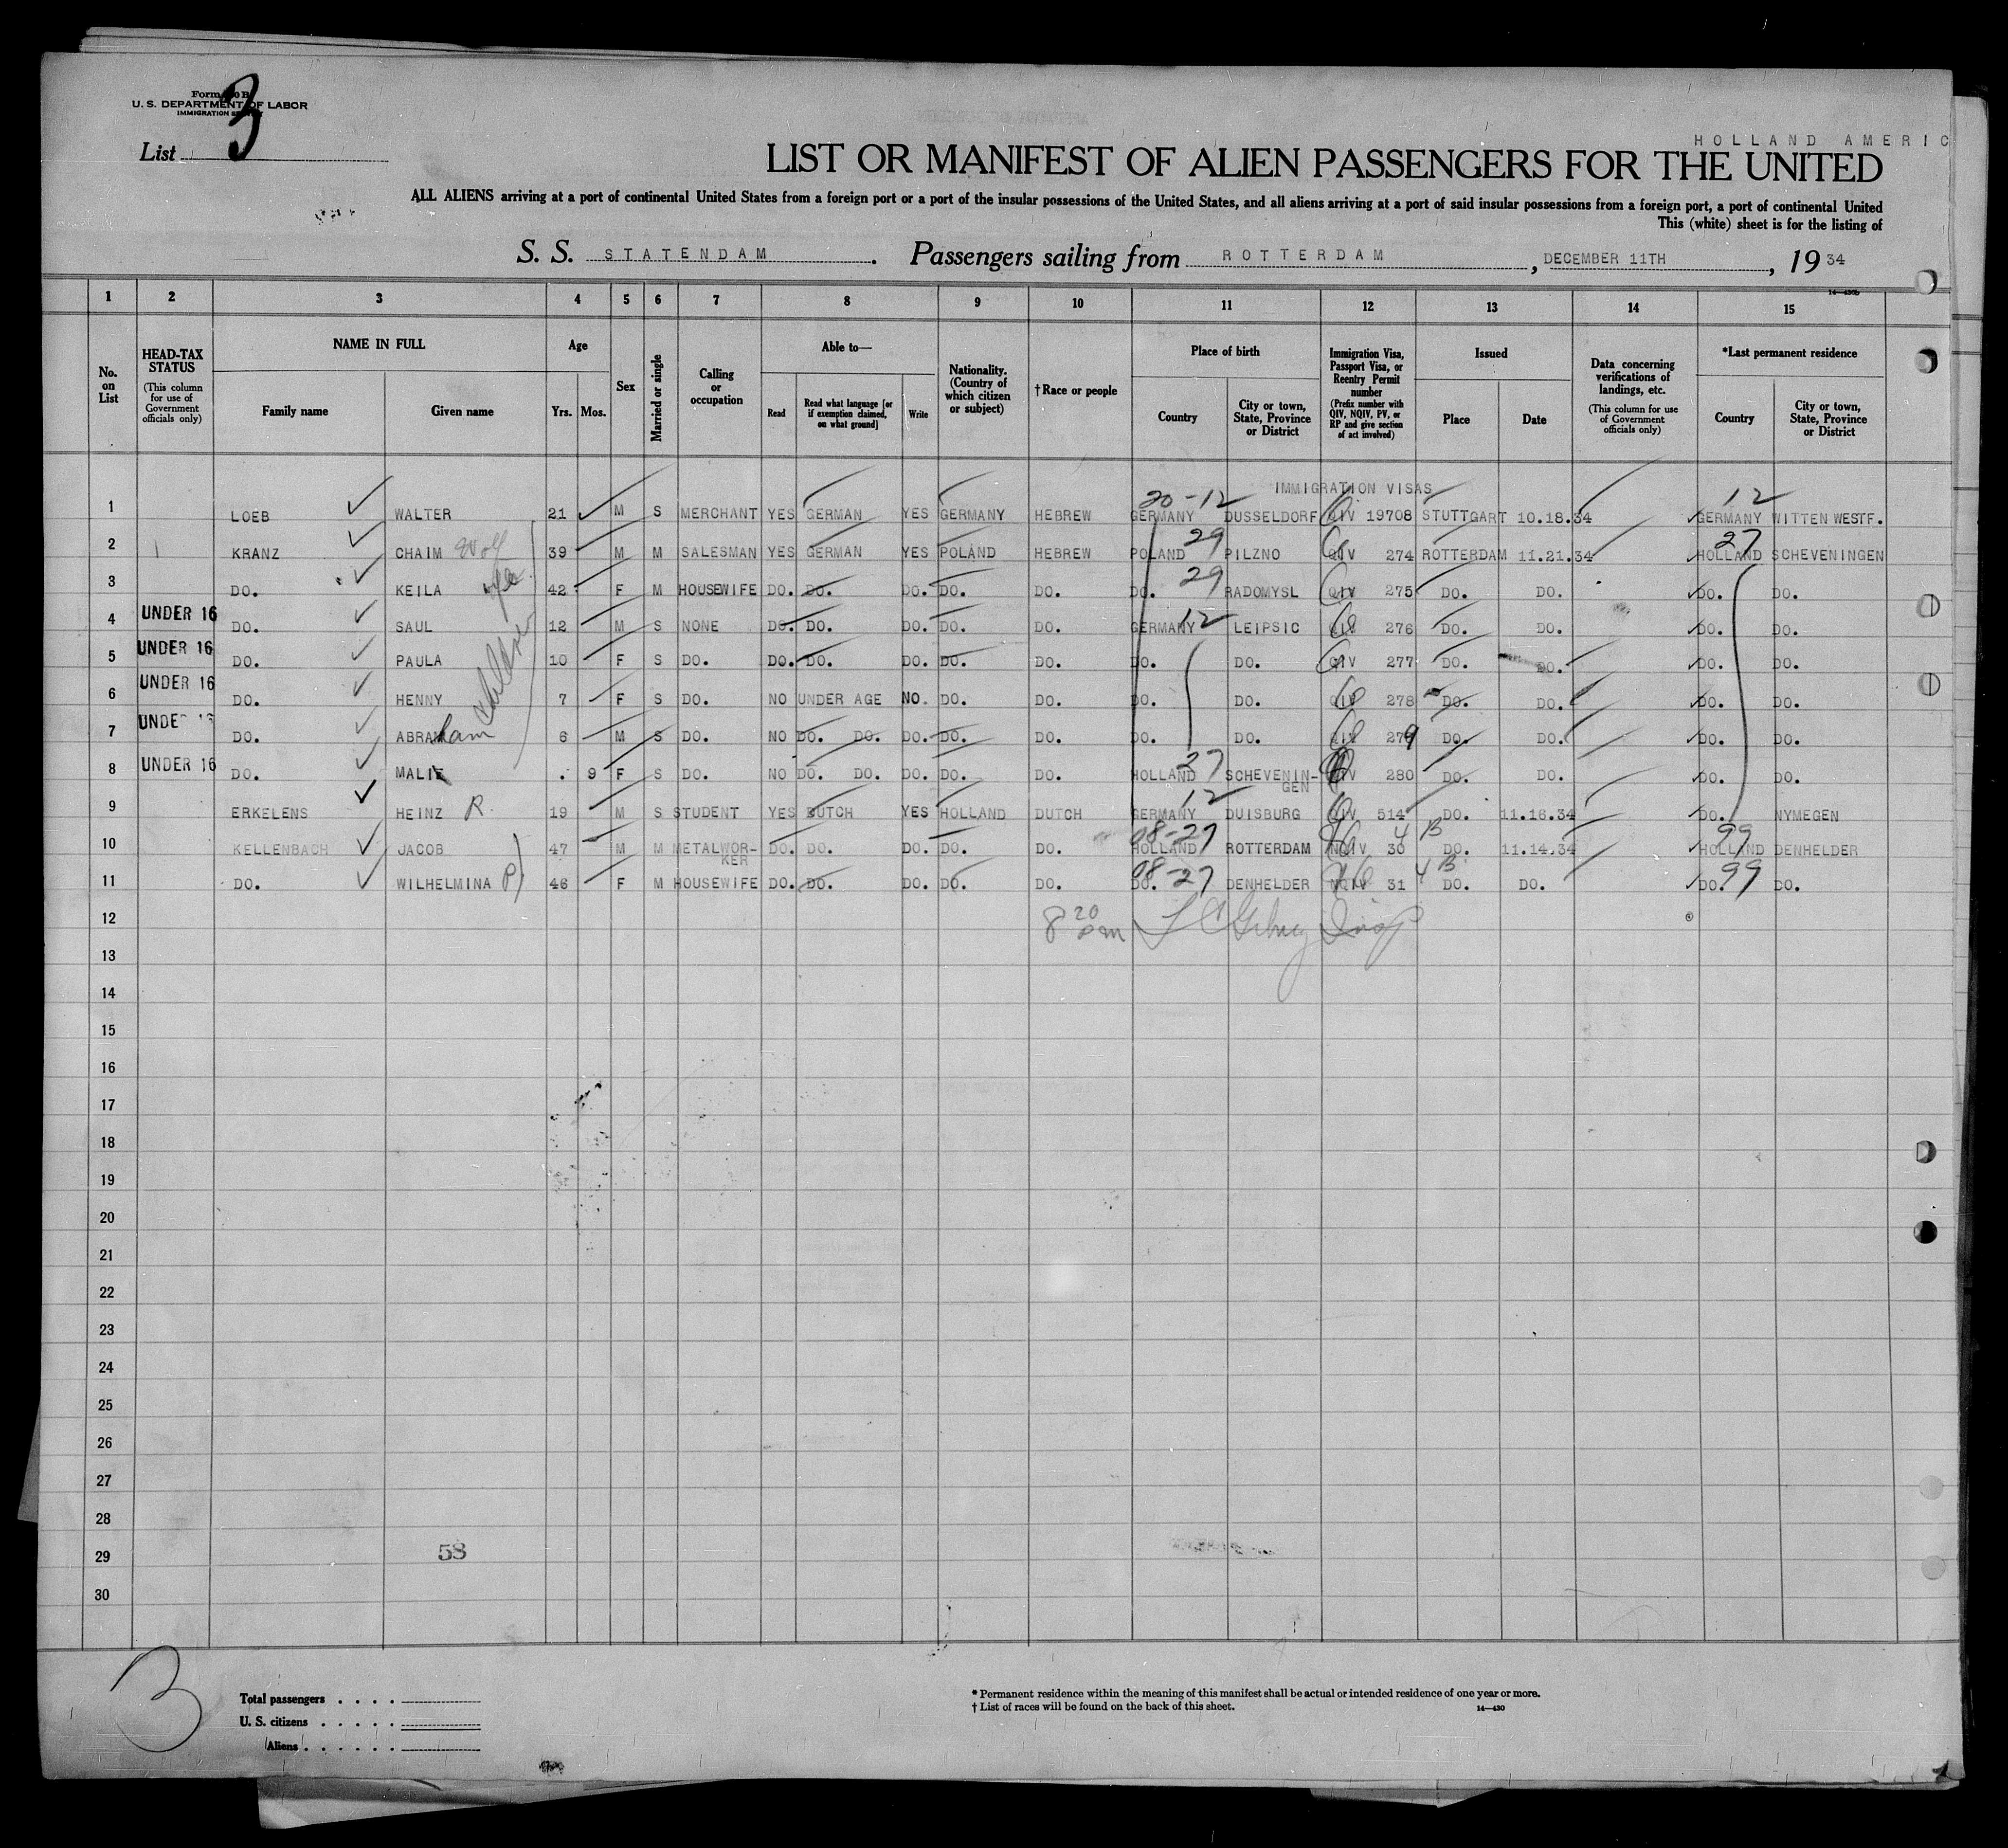 Form 500 B
U. S. DEPARTMENT OF LABOR
IMMIGRATION SERVICE
List 3
HOLLAND AMERIC
LIST OR MANIFEST OF ALIEN PASSENGERS FOR THE UNITED
ALL ALIENS arriving at a port of continental United States from a foreign port or a port of the insular possessions of the United States, and all aliens arriving at a port of said insular possessions from a foreign port, a port of continental United
This (white) sheet is for the listing of
S. S. STATENDAM . Passengers sailing from ROTTERDAM , DECEMBER 11TH , 19 34
14-430b
1 2 3 4 5 6 7 8 9 10 11 12 13 14 15
No. on List
HEAD-TAX STATUS (This column for use of Government officials only)
NAME IN FULL
Family name
Given name
Age
Yrs. Mos.
Sex
Married or single
Calling or occupation
Able to—
Read
Read what language [or if exemption claimed, on what ground]
Write
Nationality. (Country of which citizen or subject)
† Race or people
Place of birth
Country
City or town, State, Province or District
Immigration Visa, Passport Visa, or Reentry Permit number (Prefix number with QIV, NQIV, PV, or RP and give section of act involved)
Issued
Place
Date
Data concerning verifications of landings, etc. (This column for use of Government officials only)
*Last permanent residence
Country
City or town, State, Province or District
IMMIGRATION VISAS
20-12 12
1 LOEB WALTER 21 M S MERCHANT YES GERMAN YES GERMANY HEBREW GERMANY DUSSELDORF QIV 19708 STUTTGART 10.18.34 GERMANY WITTEN WESTF.
2 KRANZ CHAIM Wolf 39 M M SALESMAN YES GERMAN YES POLAND HEBREW POLAND 29 PILZNO QIV 274 ROTTERDAM 11.21.34 HOLLAND 27 SCHEVENINGEN
3 DO. KEILA 42 F M HOUSEWIFE DO. DO. DO. DO. DO. DO. 29 RADOMYSL QIV 275 DO. DO. DO. DO.
4 UNDER 16 DO. SAUL 12 M S NONE DO. DO. DO. DO. DO. GERMANY 12 LEIPSIC QIV 276 DO. DO. DO. DO.
5 UNDER 16 DO. PAULA children 10 F S DO. DO. DO. DO. DO. DO. DO. DO. QIV 277 DO. DO. DO. DO.
6 UNDER 16 DO. HENNY 7 F S DO. NO UNDER AGE NO. DO. DO. DO. DO. QIV 278 DO. DO. DO. DO.
7 UNDER 16 DO. ABRAham 6 M S DO. NO DO. DO. DO. DO. DO. DO. DO. QIV 279 DO. DO. DO. DO.
8 UNDER 16 DO. MALIE 9 F S DO. NO DO. DO. DO. DO. DO. HOLLAND 27 SCHEVENINGEN QIV 280 DO. DO. DO. DO.
9 ERKELENS HEINZ R. 19 M S STUDENT YES DUTCH YES HOLLAND DUTCH GERMANY 12 DUISBURG QIV 514 DO. 11.16.34 DO. NYMEGEN
10 KELLENBACH JACOB 47 M M METALWORKER DO. DO. DO. DO. DO. 08-27 HOLLAND ROTTERDAM NQIV 30 4 B DO. 11.14.34 HOLLAND 99 DENHELDER
11 DO. WILHELMINA P 46 F M HOUSEWIFE DO. DO. DO. DO. DO. 08-27 DO. DENHELDER NQIV 31 4 B DO. DO. DO. 99 DO.
12 8 20 pm
13
14
15
16
17
18
19
20
21
22
23
24
25
26
27
28
29 58
30
3
Total passengers . . . .
U. S. citizens . . . . .
Aliens . . . . . .
* Permanent residence within the meaning of this manifest shall be actual or intended residence of one year or more.
† List of races will be found on the back of this sheet.
14—430